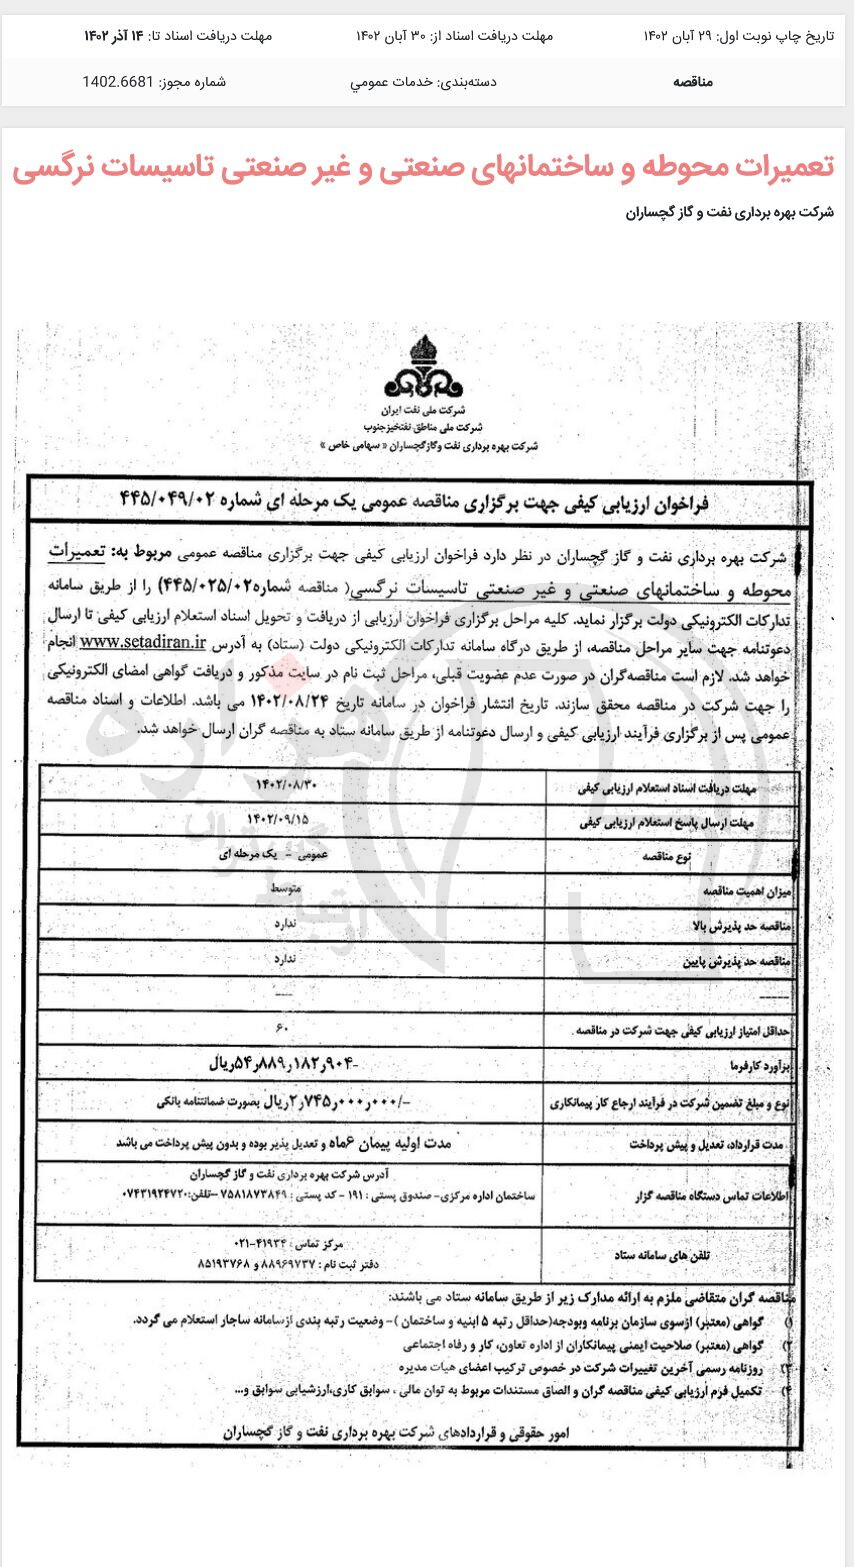 تاریخ چاپ نوبت اول: ۲۹ آبان ۱۴۰۲
مهلت دریافت اسناد از: ۳۰ آبان ۱۴۰۲
مهلت دریافت اسناد تا: ۱۴ آذر ۱۴۰۲
مناقصه
دسته‌بندی: خدمات عمومي
شماره مجوز: 1402.6681
تعمیرات محوطه و ساختمانهای صنعتی و غیر صنعتی تاسیسات نرگسی
شرکت بهره برداری نفت و گاز گچساران
شرکت ملی نفت ایران
شرکت ملی مناطق نفتخیزجنوب
شرکت بهره برداری نفت وگازگچساران « سهامی خاص »
فراخوان ارزیابی کیفی جهت برگزاری مناقصه عمومی یک مرحله ای شماره ۴۴۵/۰۴۹/۰۲
شرکت بهره برداری نفت و گاز گچساران در نظر دارد فراخوان ارزیابی کیفی جهت برگزاری مناقصه عمومی مربوط به: تعمیرات
محوطه و ساختمانهای صنعتی و غیر صنعتی تاسیسات نرگسی( مناقصه شماره۴۴۵/۰۲۵/۰۲) را از طریق سامانه
تدارکات الکترونیکی دولت برگزار نماید. کلیه مراحل برگزاری فراخوان ارزیابی از دریافت و تحویل اسناد استعلام ارزیابی کیفی تا ارسال
دعوتنامه جهت سایر مراحل مناقصه، از طریق درگاه سامانه تدارکات الکترونیکی دولت (ستاد) به آدرس www.setadiran.ir انجام
خواهد شد. لازم است مناقصه‌گران در صورت عدم عضویت قبلی، مراحل ثبت نام در سایت مذکور و دریافت گواهی امضای الکترونیکی
را جهت شرکت در مناقصه محقق سازند. تاریخ انتشار فراخوان در سامانه تاریخ ۱۴۰۲/۰۸/۲۴ می باشد. اطلاعات و اسناد مناقصه
عمومی پس از برگزاری فرآیند ارزیابی کیفی و ارسال دعوتنامه از طریق سامانه ستاد به مناقصه گران ارسال خواهد شد.
مهلت دریافت اسناد استعلام ارزیابی کیفی ۱۴۰۲/۰۸/۳۰
مهلت ارسال پاسخ استعلام ارزیابی کیفی ۱۴۰۲/۰۹/۱۵
نوع مناقصه عمومی - یک مرحله ای
میزان اهمیت مناقصه متوسط
مناقصه حد پذیرش بالا ندارد
مناقصه حد پذیرش پایین ندارد
----- ---
حداقل امتیاز ارزیابی کیفی جهت شرکت در مناقصه . ۶۰
برآورد کارفرما ۵۴٫۸۸۹٫۱۸۲٫۹۰۴-ریال
نوع و مبلغ تضمین شرکت در فرآیند ارجاع کار پیمانکاری ۲٫۷۴۵٫۰۰۰٫۰۰۰/-ریال بصورت ضمانتنامه بانکی
مدت قرارداد، تعدیل و پیش پرداخت مدت اولیه پیمان ۶ماه و تعدیل پذیر بوده و بدون پیش پرداخت می باشد
اطلاعات تماس دستگاه مناقصه گزار آدرس شرکت بهره برداری نفت و گاز گچساران
ساختمان اداره مرکزی- صندوق پستی : ۱۹۱ - کد پستی : ۷۵۸۱۸۷۳۸۴۹ -تلفن:۰۷۴۳۱۹۲۴۷۲۰
تلفن های سامانه ستاد مرکز تماس : ۴۱۹۳۴-۰۲۱
دفتر ثبت نام : ۸۸۹۶۹۷۳۷ و ۸۵۱۹۳۷۶۸
مناقصه گران متقاضی ملزم به ارائه مدارک زیر از طریق سامانه ستاد می باشند:
۱) گواهی (معتبر) ازسوی سازمان برنامه وبودجه(حداقل رتبه ۵ ابنیه و ساختمان )- وضعیت رتبه بندی ازسامانه ساجار استعلام می گردد.
۲) گواهی (معتبر) صلاحیت ایمنی پیمانکاران از اداره تعاون، کار و رفاه اجتماعی
۳) روزنامه رسمی آخرین تغییرات شرکت در خصوص ترکیب اعضای هیات مدیره
۴) تکمیل فرم ارزیابی کیفی مناقصه گران و الصاق مستندات مربوط به توان مالی ، سوابق کاری،ارزشیابی سوابق و...
امور حقوقی و قراردادهای شرکت بهره برداری نفت و گاز گچساران